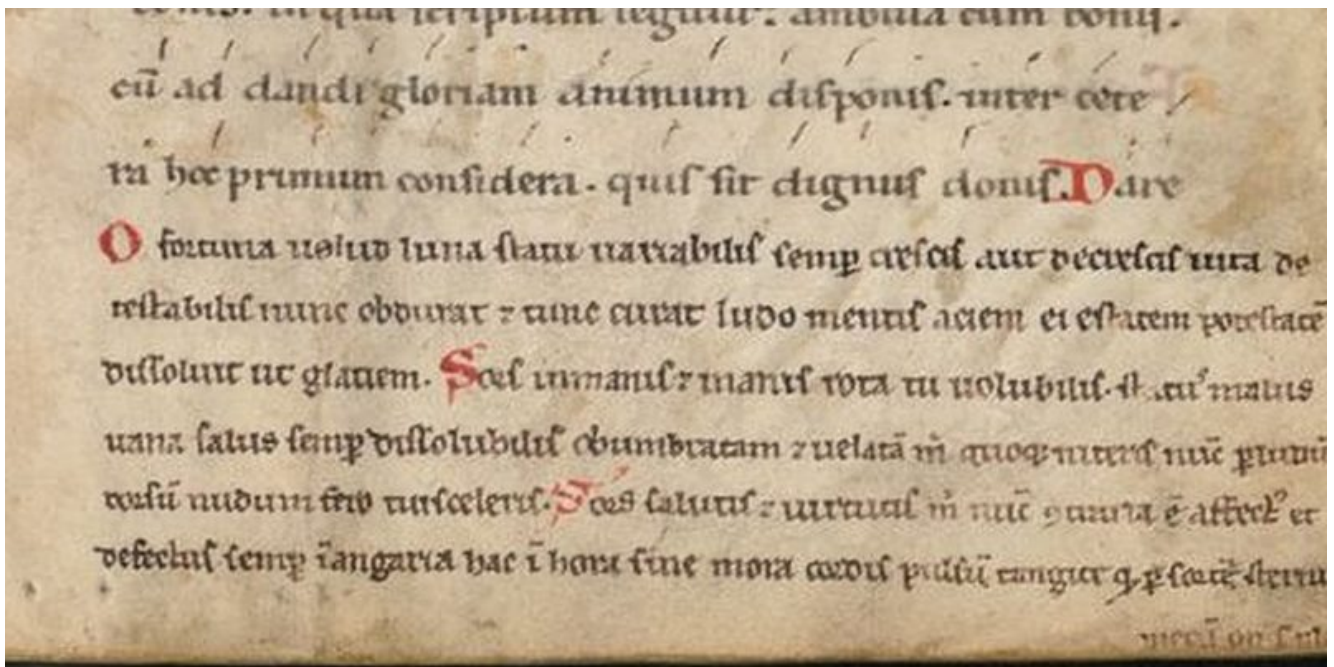 in qua scriptum legitur. ambula cum bonis.
cū ad dandi gloriam animum disponis. inter cete
ra hoc primum considera. quis sit dignus donis. Dare
O fortuna uelud luna statu uariabilis semp crescis aut decrescis uita de
testabilis nunc obdurat ⁊ tunc curat ludo mentis aciem egestatem potestatē
dissoluit ut glaciem. Sors inmanis ⁊ inanis rota tu uolubilis. status malus
uana salus semp dissolubilis obumbratam ⁊ uelatā m̄ quoq niteris nūc p ludū
dorsū nudum fero tui sceleris. Sors salutis ⁊ uirtutis m̄ nūc ꝯtraria ē affectꝰ et
defectus semp ī angaria hac ī hora sine mora cordis pulsū tangite q̄ p sortē sternit